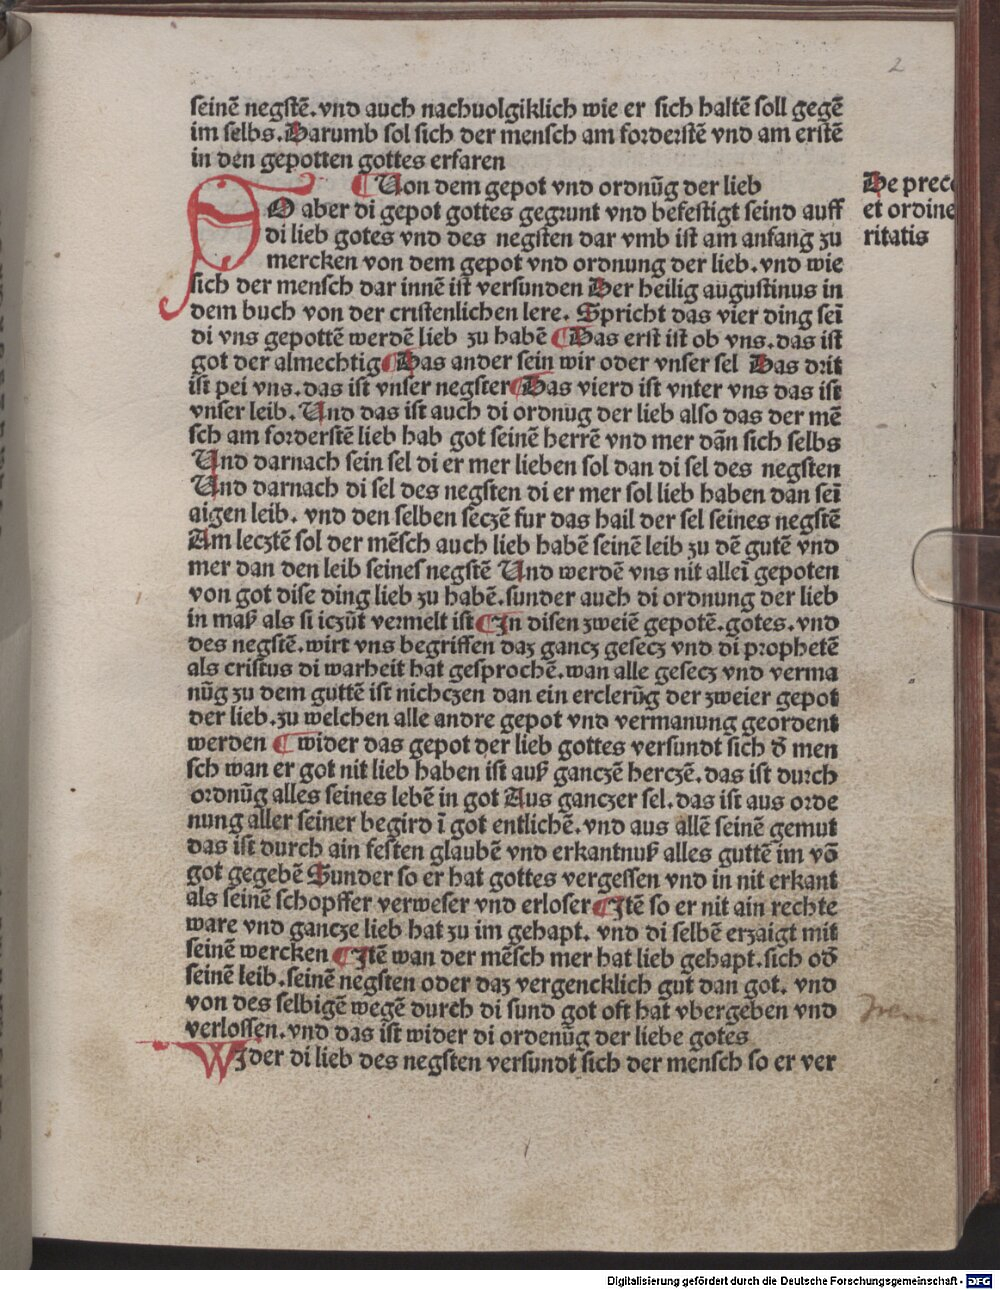 2
seinē negstē. vnd auch nachuolgiklich wie er sich haltē soll gegē
im selbs. Darumb sol sich der mensch am forderstē vnd am erstē
in den gepotten gottes erfaren
¶ Von dem gepot vnd ordnūg der lieb
De prec
et ordine
ritatis
SO aber di gepot gottes gegrunt vnd befestigt seind auff
di lieb gotes vnd des negsten dar vmb ist am anfang zu
mercken von dem gepot vnd ordnung der lieb. vnd wie
sich der mensch dar innē ist versunden Der heilig augustinus in
dem buch von der cristenlichen lere. Spricht das vier ding sei
di vns gepottē werdē lieb zu habē ¶ Das erst ist ob vns. das ist
got der almechtig ¶ Das ander sein wir oder vnser sel Das drit
ist pei vns. das ist vnser negster ¶ Das vierd ist vnter vns das ist
vnser leib. Und das ist auch di ordnūg der lieb also das der mē
sch am forderstē lieb hab got seinē herrē vnd mer dān sich selbs
Und darnach sein sel di er mer lieben sol dan di sel des negsten
Und darnach di sel des negsten di er mer sol lieb haben dan seī
aigen leib. vnd den selben seczē fur das hail der sel seines negstē
Am lecztē sol der mēsch auch lieb habē seinē leib zu dē gutē vnd
mer dan den leib seines negstē Und werdē vns nit alleī gepoten
von got dise ding lieb zu habē. sunder auch di ordnung der lieb
in maß als si iczūt vermelt ist ¶ In disen zweiē gepotē. gotes. vnd
des negstē. wirt vns begriffen daz gancz gesecz vnd di prophetē
als cristus di warheit hat gesprochē. wan alle gesecz vnd verma
nūg zu dem guttē ist nichczen dan ein erclerūg der zweier gepot
der lieb. zu welchen alle andre gepot vnd vermanung geordent
werden ¶ wider das gepot der lieb gottes versundt sich d̄ men
sch wan er got nit lieb haben ist auß ganczē herczē. das ist durch
ordnūg alles seines lebē in got Aus ganczer sel. das ist aus orde
nung aller seiner begird ī got entlichē. vnd aus allē seinē gemut
das ist durch ain festen glaubē vnd erkantnuß alles guttē im vō
got gegebē Sunder so er hat gottes vergessen vnd in nit erkant
als seinē schopffer verweser vnd erloser ¶ Itē so er nit ain rechte
ware vnd gancze lieb hat zu im gehapt. vnd di selbē erzaigt mit
seinē wercken ¶ Itē wan der mēsch mer hat lieb gehapt. sich od̄
seinē leib. seinē negsten oder daz vergencklich gut dan got. vnd
von des selbigē wegē durch di sund got oft hat vbergeben vnd
verlossen. vnd das ist wider di ordenūg der liebe gotes
WIder di lieb des negsten versundt sich der mensch so er ver
Digitalisierung gefördert durch die Deutsche Forschungsgemeinschaft - DFG